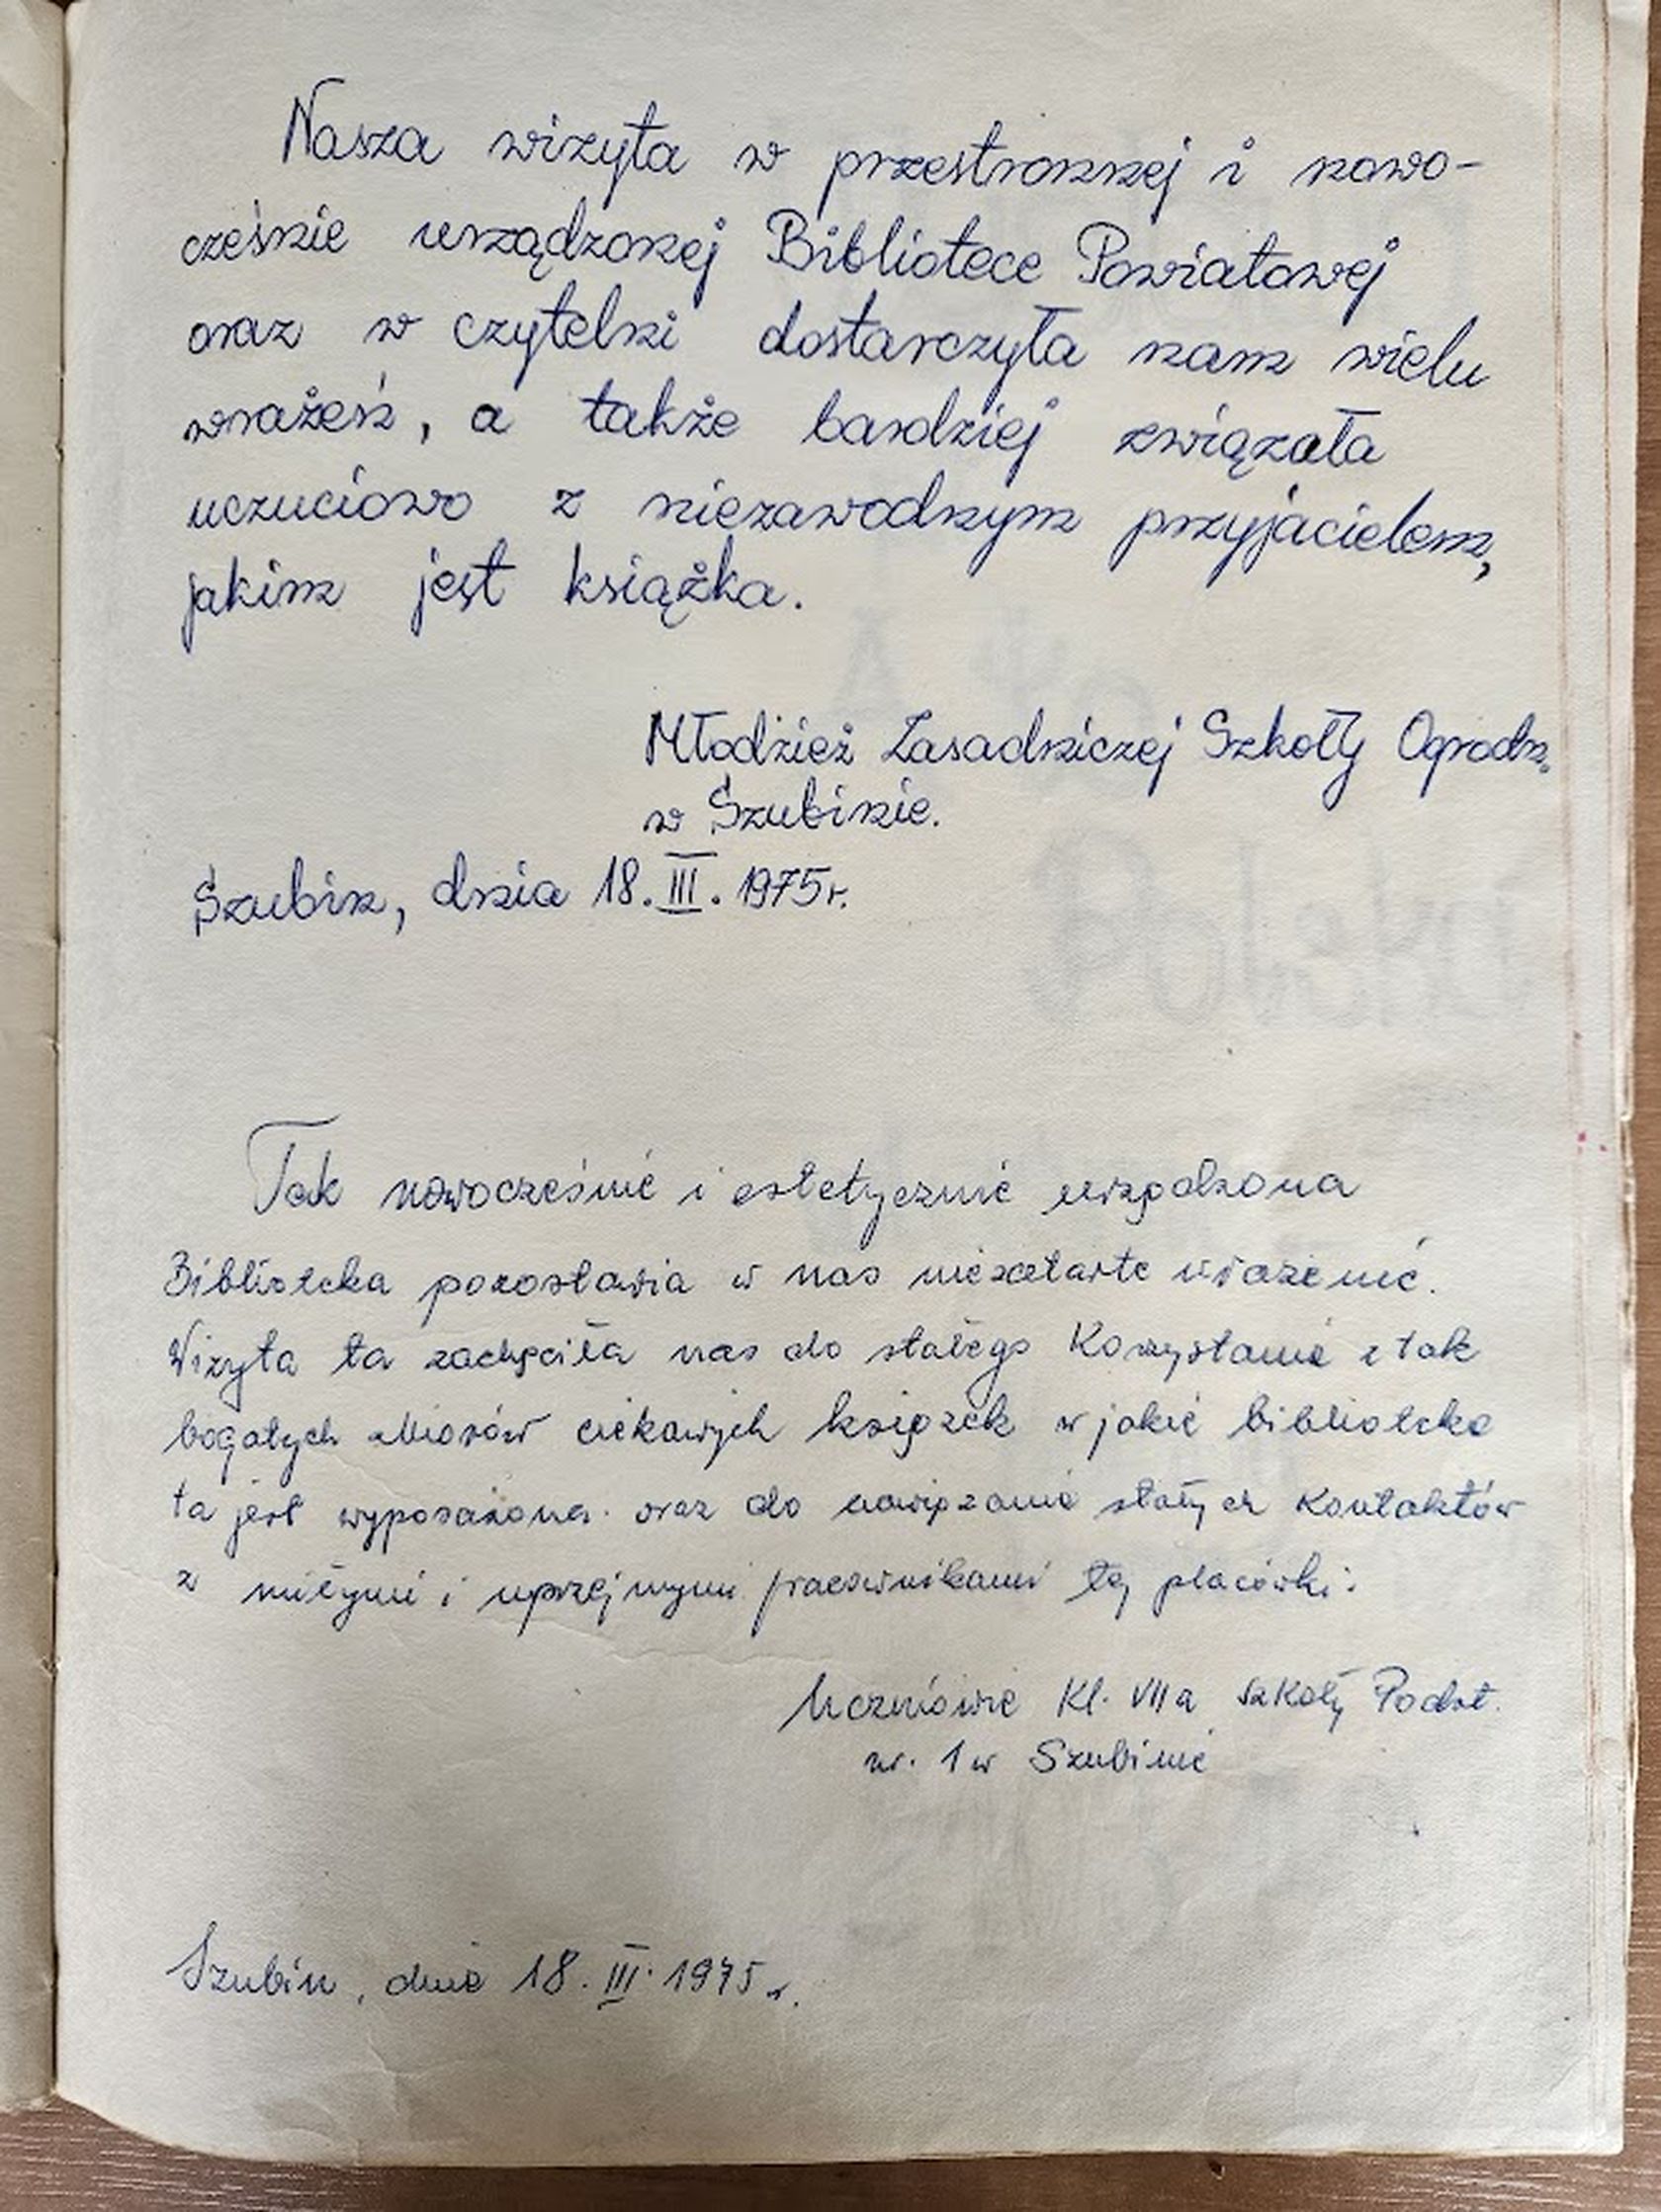 Nasza wizyta w przestronnej i nowo-
cześnie urządzonej Bibliotece Powiatowej
oraz w czytelni dostarczyła nam wielu
wrażeń, a także bardziej związała
uczuciowo z niezawodnym przyjacielem,
jakim jest książka.
Młodzież Zasadniczej Szkoły Ogrodn.
w Szubinie.
Szubin, dnia 18. III. 1975r.
Tak nowocześnie i estetycznie urządzona
Biblioteka pozostawia w nas niezatarte wrażenie.
Wizyta ta zachęciła nas do stałego Korzystania z tak
bogatych zbiorów ciekawych książek w jakie biblioteka
ta jest wyposażona. oraz do nawiązania stałych Kontaktów
z miłymi i uprzejmymi pracownikami tej placówki.
Uczniowie Kl. VII a szkoły Podst.
nr. 1 w Szubinie
Szubin, dnia 18. III. 1975 r.